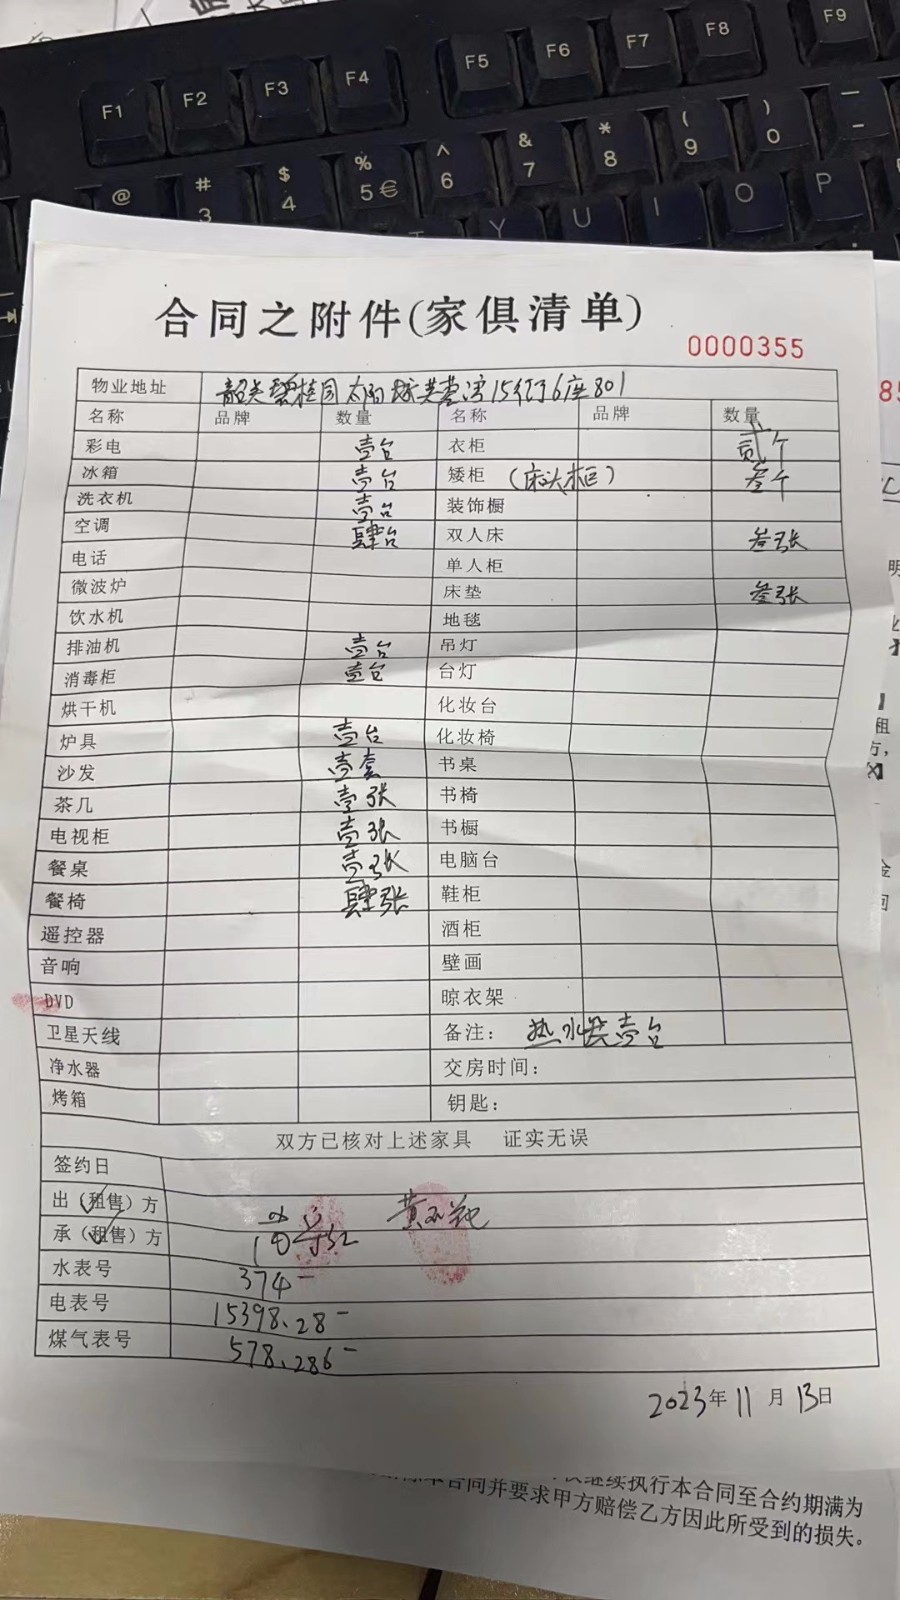 F1 F2 F3 F4 F5 F6 F7 F8 F9
@ # 3 $ 4 % 5 € ^ 6 & 7 * 8 ( 9 ) 0 — -
Y U I O P
合同之附件(家俱清单)
0000355
物业地址 韶关碧桂园太阳城芙蓉湾15街6座801
名称 品牌 数量 名称 品牌 数量
彩电 壹台 衣柜 贰个
冰箱 壹台 矮柜 (床头柜) 叁个
洗衣机 壹台 装饰橱
空调 肆台 双人床 叁张
电话 单人柜
微波炉 床垫 叁张
饮水机 地毯
排油机 壹台 吊灯
消毒柜 壹台 台灯
烘干机 化妆台
炉具 壹台 化妆椅
沙发 壹套 书桌
茶几 壹张 书椅
电视柜 壹张 书橱
餐桌 壹张 电脑台
餐椅 肆张 鞋柜
遥控器 酒柜
音响 壁画
DVD 晾衣架
卫星天线 备注: 热水器壹台
净水器 交房时间:
烤箱 钥匙:
双方已核对上述家具 证实无误
签约日
出(租售)方
承(租售)方
水表号 374-
电表号 15398.28-
煤气表号 578.286-
2023年11月13日
继续执行本合同至合约期满为
合同并要求甲方赔偿乙方因此所受到的损失。